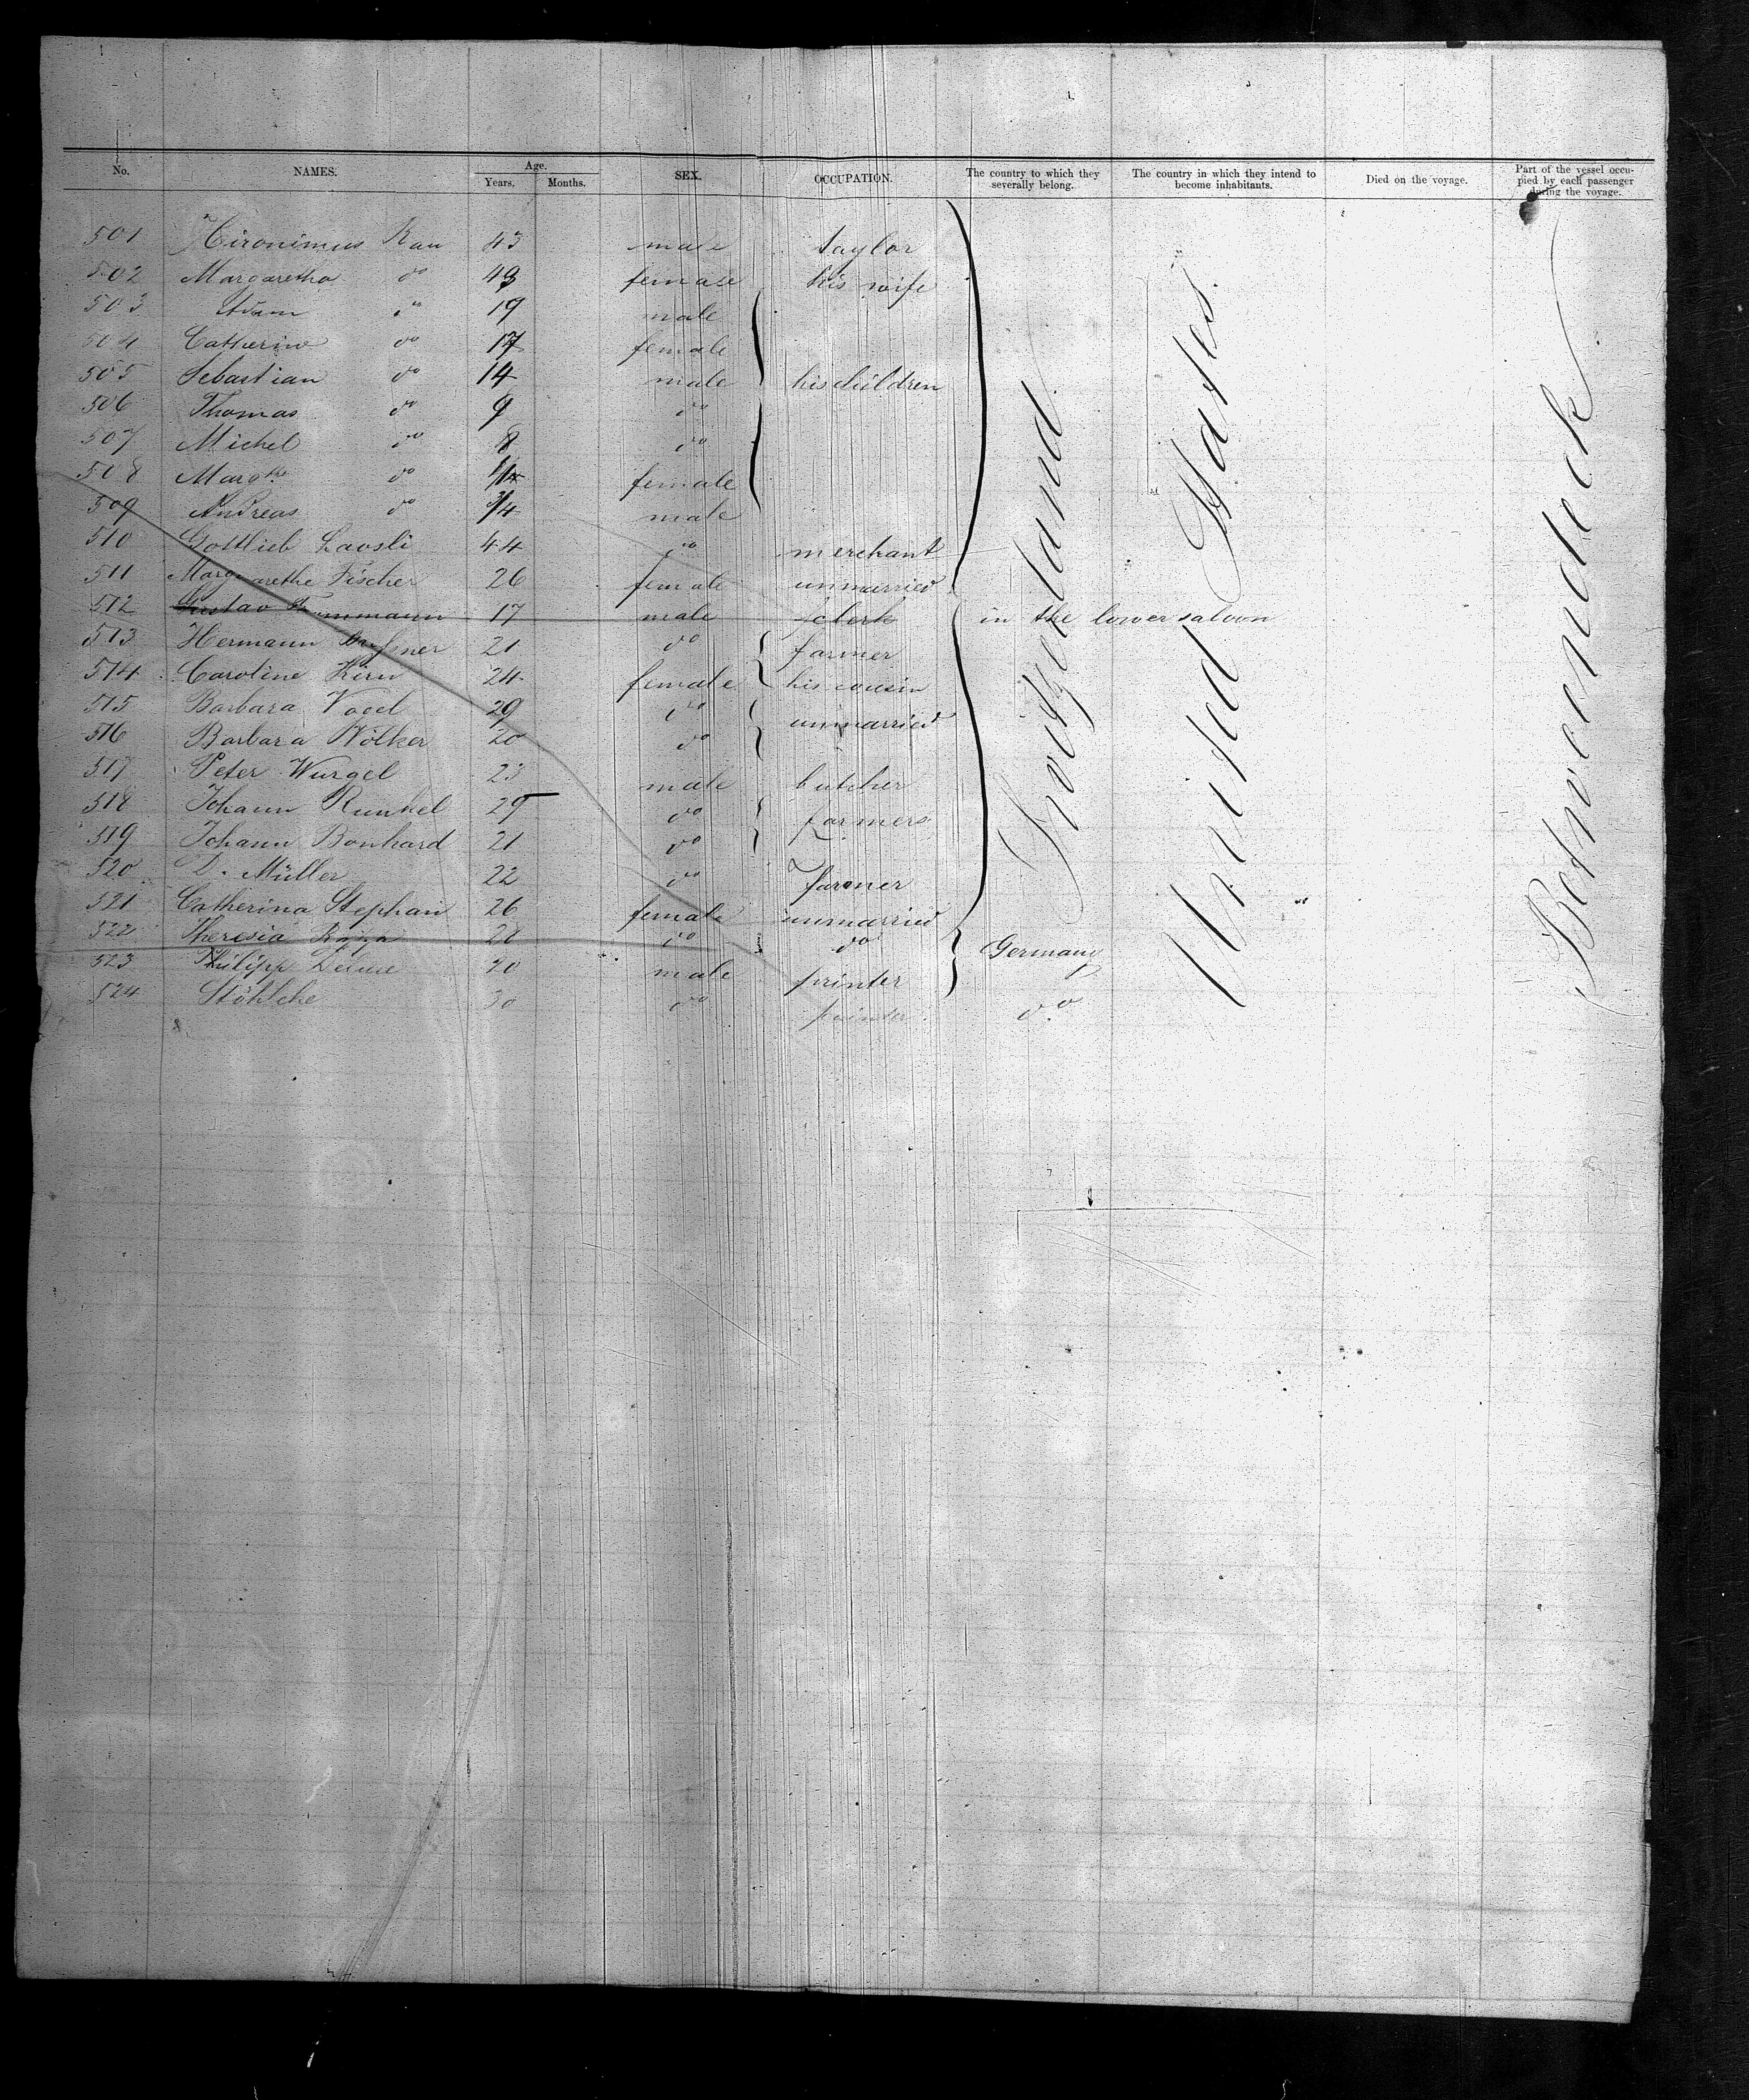 No. NAMES. Age. Years. Months. SEX. OCCUPATION. The country to which they severally belong. The country in which they intend to become inhabitants. Died on the voyage. Part of the vessel occupied by each passenger during the voyage.
501 Hironimus Rau 43 male taylor
502 Margaretha do 49 female his wife
503 Adam do 19 male
504 Catherine do 17 female
505 Sebastian do 14 male his children
506 Thomas do 9 do
507 Michel do 8 do
508 Margthe do female
509 Andreas do 3/4 male
510 Gottlieb 44 do merchant
511 Margarethe Fischer 26 female unmarried
512 Gustav 17 male clerk in the lower saloon
513 Hermann 21 do farmer
514 Caroline Kirn 24 female his cousin
515 Barbara Vogel 29 do unmarried
516 Barbara Wölker 20 do
517 Peter Wurgel 23 male butcher
518 Johann Runkel 29 do farmers
519 Johann Bonhard 21 do
520 D. Müller 22 do farmer
521 Catherina Stephan 26 female unmarried
522 Theresia 20 do do Germany
523 Philipp 20 male printer
524 Stöhlche 30 do do
Switzerland
United States.
Betweendeck